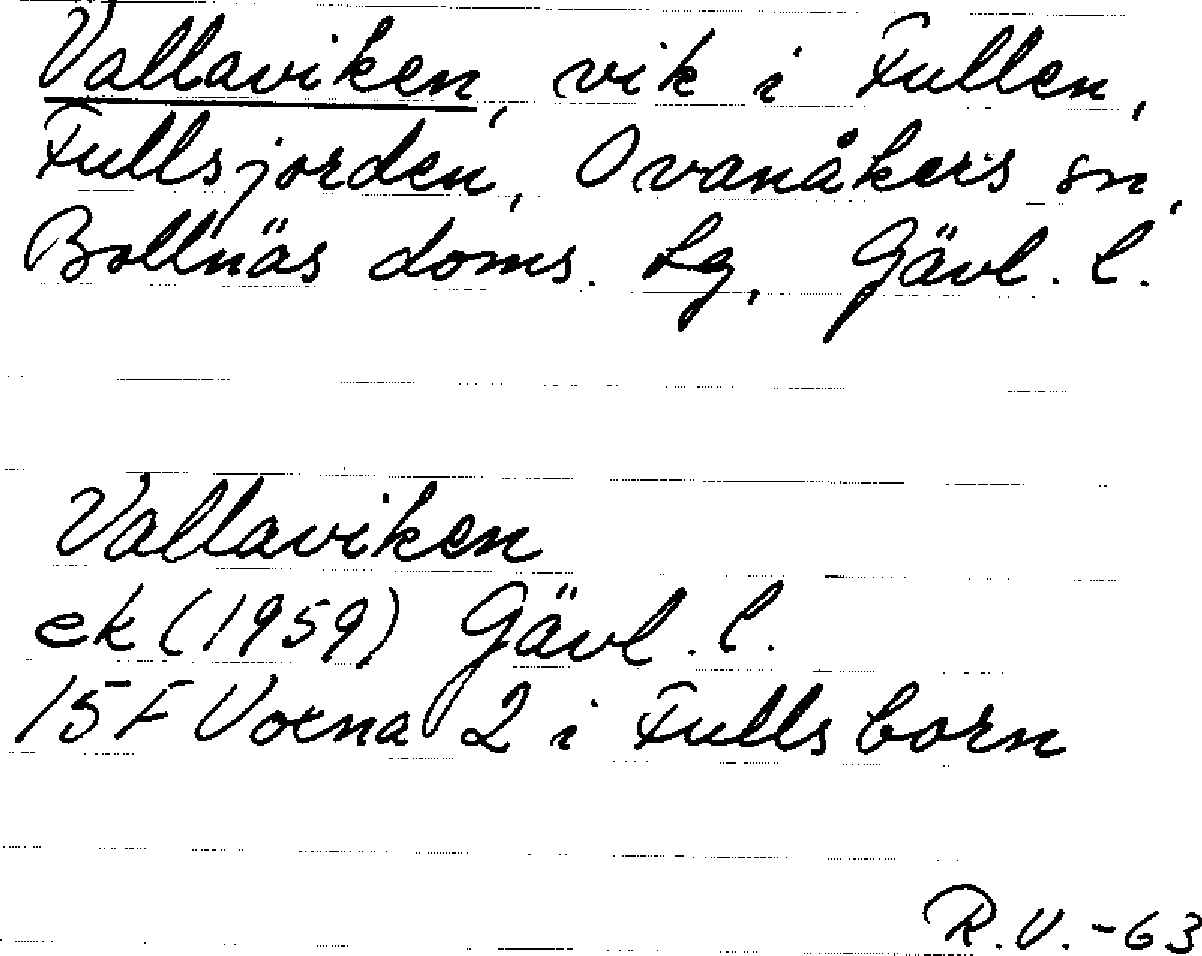 Vallaviken, vik i Fullen,
Fullsjorden, Ovanåkers sn,
Bollnäs doms. lg, Gävl. l.
Vallaviken
ek (1959) Gävl. l.
15 F Voxna 2 i Fullsborn
R.V. -63